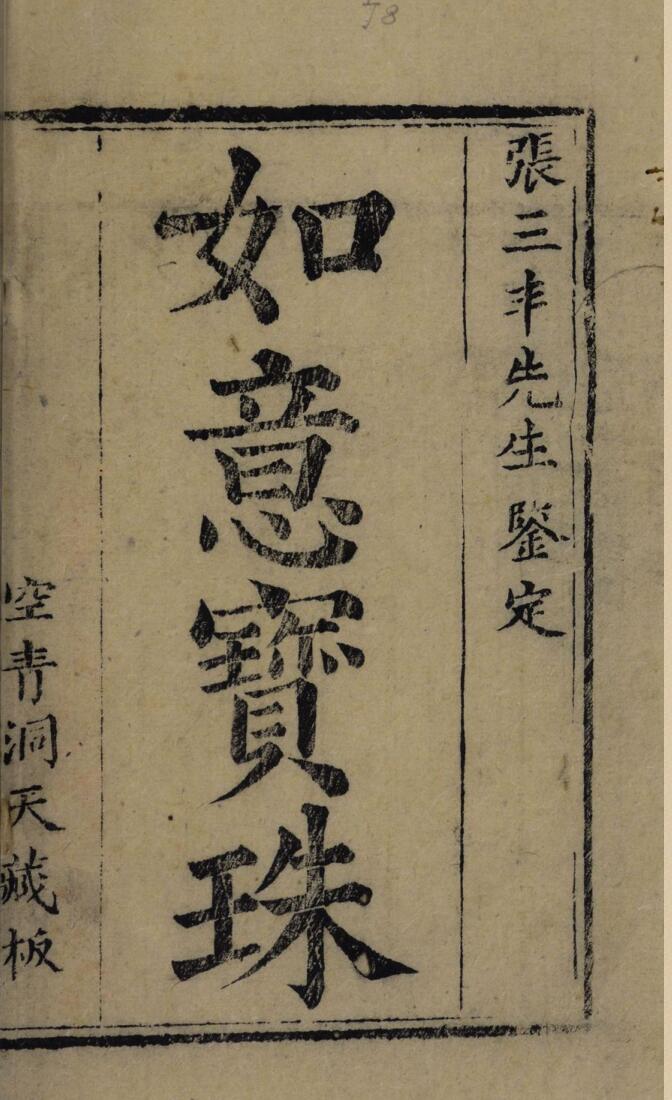 張三丰先生鑒定
如意寶珠
空青洞天藏板
78